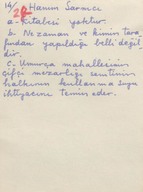 14/
24 Hanım Sarnıcı
a- kitabesi yoktur.
b. Nezaman ve kimin tara
fından yapıldığı belli değil
dir.
c. Umurga mahallesinin
Çifçi mezarlığı semtinin
halkının kullanma suyu
ihtiyacını temin eder.